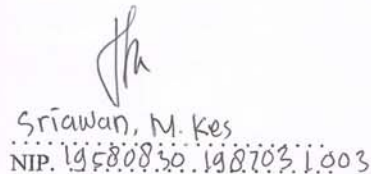 Sriawan, M. Kes
NIP. 19580830 198703 1 003